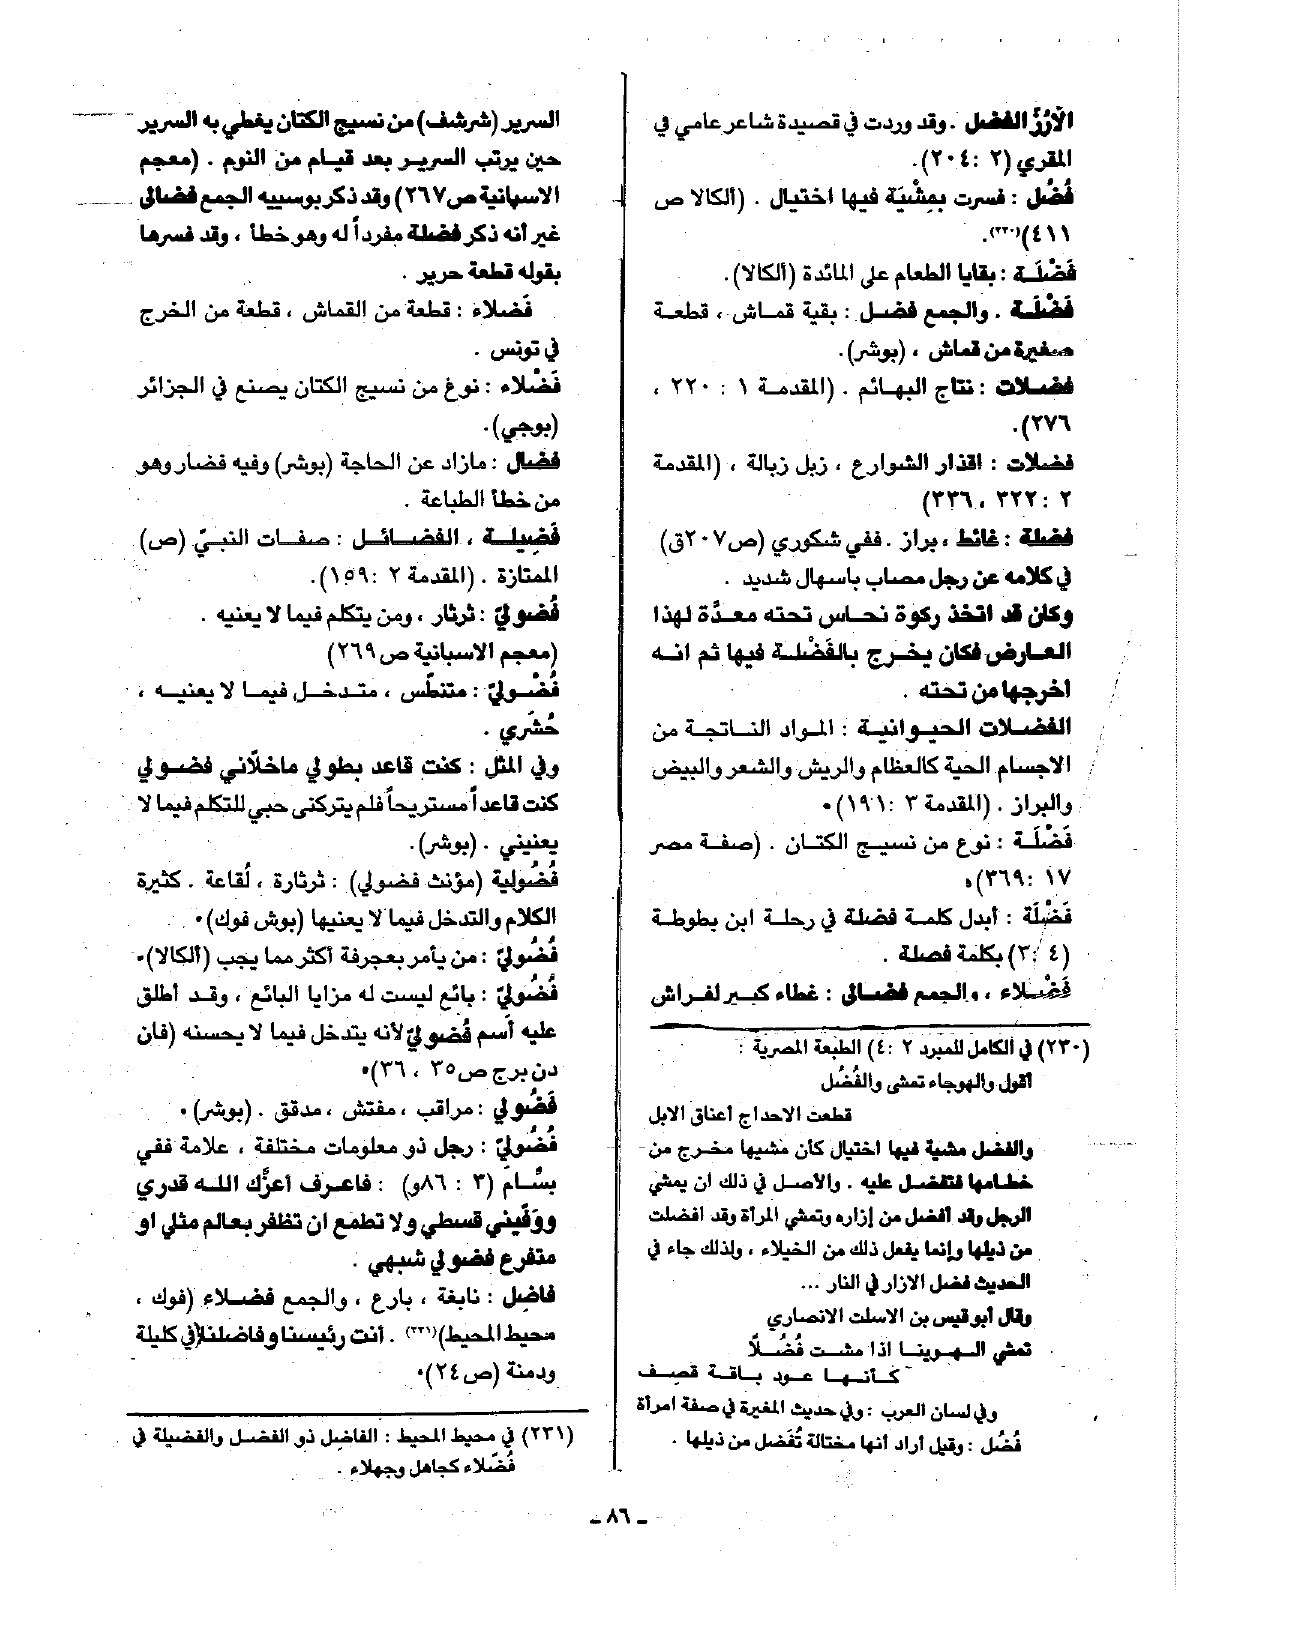 الأرُزّ الفضل . وقد وردت في قصيدة شاعر عامي في
المقري (٢ : ٢٠٤).
فُضُل : فسرت بمِشْيَة فيها اختيال . (ألكالا ص
٤١١)(٢٣٠).
فَضْلَـة : بقايا الطعام على المائدة (ألكالا).
فَضْلَـة . والجمع فضـل : بقية قمـاش ، قطعـة
صغيرة من قماش ، (بوشر).
فضـلات : نتاج البهـائم . (المقدمـة ١ : ٢٢٠ ،
٢٧٦).
فضلات : اقذار الشوارع ، زبل زبالة ، (المقدمة
٢ : ٣٢٢ ، ٣٣٦)
فضلة : غائط ، براز . ففي شكوري (ص٢٠٧ق)
في كلامه عن رجل مصاب باسهال شديد .
وكان قد اتخذ ركوة نحـاس تحته معـدَّة لهذا
العـارض فكان يخـرج بالفَضْلـة فيها ثم انـه
اخرجها من تحته .
الفضـلات الحيـوانيـة : المـواد النـاتجـة من
الاجسام الحية كالعظام والريش والشعر والبيض
والبراز . (المقدمة ٣ : ١٩١).
فَضْلَـة : نوع من نسيـج الكتـان . (صفـة مصر
١٧ : ٣٦٩).
فَضْلَة : أبدل كلمـة فضلة في رحلـة ابن بطوطـة
(٤ : ٣) بكلمة فصلة .
فَضْـلاء ، والجمع فضـالى : غطاء كبـير لفـراش
(٢٣٠) في الكامل للمبرد ٢ : ٤) الطبعة المصرية :
أقول والهوجاء تمشى والفُضُل
قطعت الاحداج أعناق الابل
والفضل مشية فيها اختيال كأن مشيها مخرج من
خطـامها فتفضـل عليه . والأصل في ذلك أن يمشي
الرجل وقد أفضل من إزاره وتمشي المرأة وقد افضلت
من ذيلها وإنما يفعل ذلك من الخيلاء ، ولذلك جاء في
الحديث فضل الازار في النار ...
وقال أبو قيس بن الاسلت الانصاري
تمشي الـهـوينـا اذا مشـت فُضُـلاً
كـأنـهـا عـود بـاقـة قصـف
وفي لسان العرب : وفي حديث المغيرة في صفة امرأة
فُضُل : وقيل أراد أنها مختالة تُفضل من ذيلها .
السرير (شرشف) من نسيج الكتان يغطي به السرير
حين يرتب السريـر بعد قيـام من النوم . (معجم
الاسبانية ص٢٦٧) وقد ذكر بوسييه الجمع فضالى
غير أنه ذكر فضلة مفرداً له وهو خطأ ، وقد فسرها
بقوله قطعة حرير .
فَضلاء : قطعة من القماش ، قطعة من الخرج
في تونس .
فَضْلاء : نوع من نسيج الكتان يصنع في الجزائر
(بوجي).
فضال : مازاد عن الحاجة (بوشر) وفيه فضار وهو
من خطأ الطباعة .
فَضيلـة ، الفضـائـل : صفـات النبيّ (ص)
الممتازة . (المقدمة ٢ : ١٥٩).
فُضُوليّ : ثرثار ، ومن يتكلم فيما لا يعنيه .
(معجم الاسبانية ص ٢٦٩)
فُضُـوليّ : متنطّس ، متـدخـل فيمـا لا يعنيـه ،
حُشَري .
وفي المثل : كنت قاعد بطولي ماخلّاني فضـولي
كنت قاعداً مستريحاً فلم يتركنى حبي للتكلم فيما لا
يعنيني . (بوشر).
فُضُولية (مؤنث فضولي) : ثرثارة ، لُقاعة . كثيرة
الكلام والتدخل فيما لا يعنيها (بوش فوك).
فُضُوليّ : من يأمر بعجرفة أكثر مما يجب (ألكالا).
فُضُوليّ : بائع ليست له مزايا البائع ، وقـد أطلق
عليه أسم فُضوليّ لأنه يتدخل فيما لا يحسنه (فان
دن برج ص٣٥ ، ٣٦).
فَضُولي : مراقب ، مفتش ، مدقق . (بوشر).
فُضُوليّ : رجل ذو معلومات مختلفة ، علامة ففي
بسَّـام (٣ : ٨٦و) : فاعـرف أعزَّك اللـه قدري
ووَفّيني قسطي ولا تطمع ان تظفر بعالم مثلي او
متفرع فضولي شبهي .
فاضل : نابغة ، بارع ، والجمع فضـلاء (فوك ،
محيط المحيط)(٢٣١) . أنت رئيسنا وفاضلنا(في كليلة
ودمنة (ص ٢٤).
(٢٣١) في محيط المحيط : الفاضل ذو الفضل والفضيلة في
فُضّلاء كجاهل وجهلاء .
ـ ٨٦ ـ